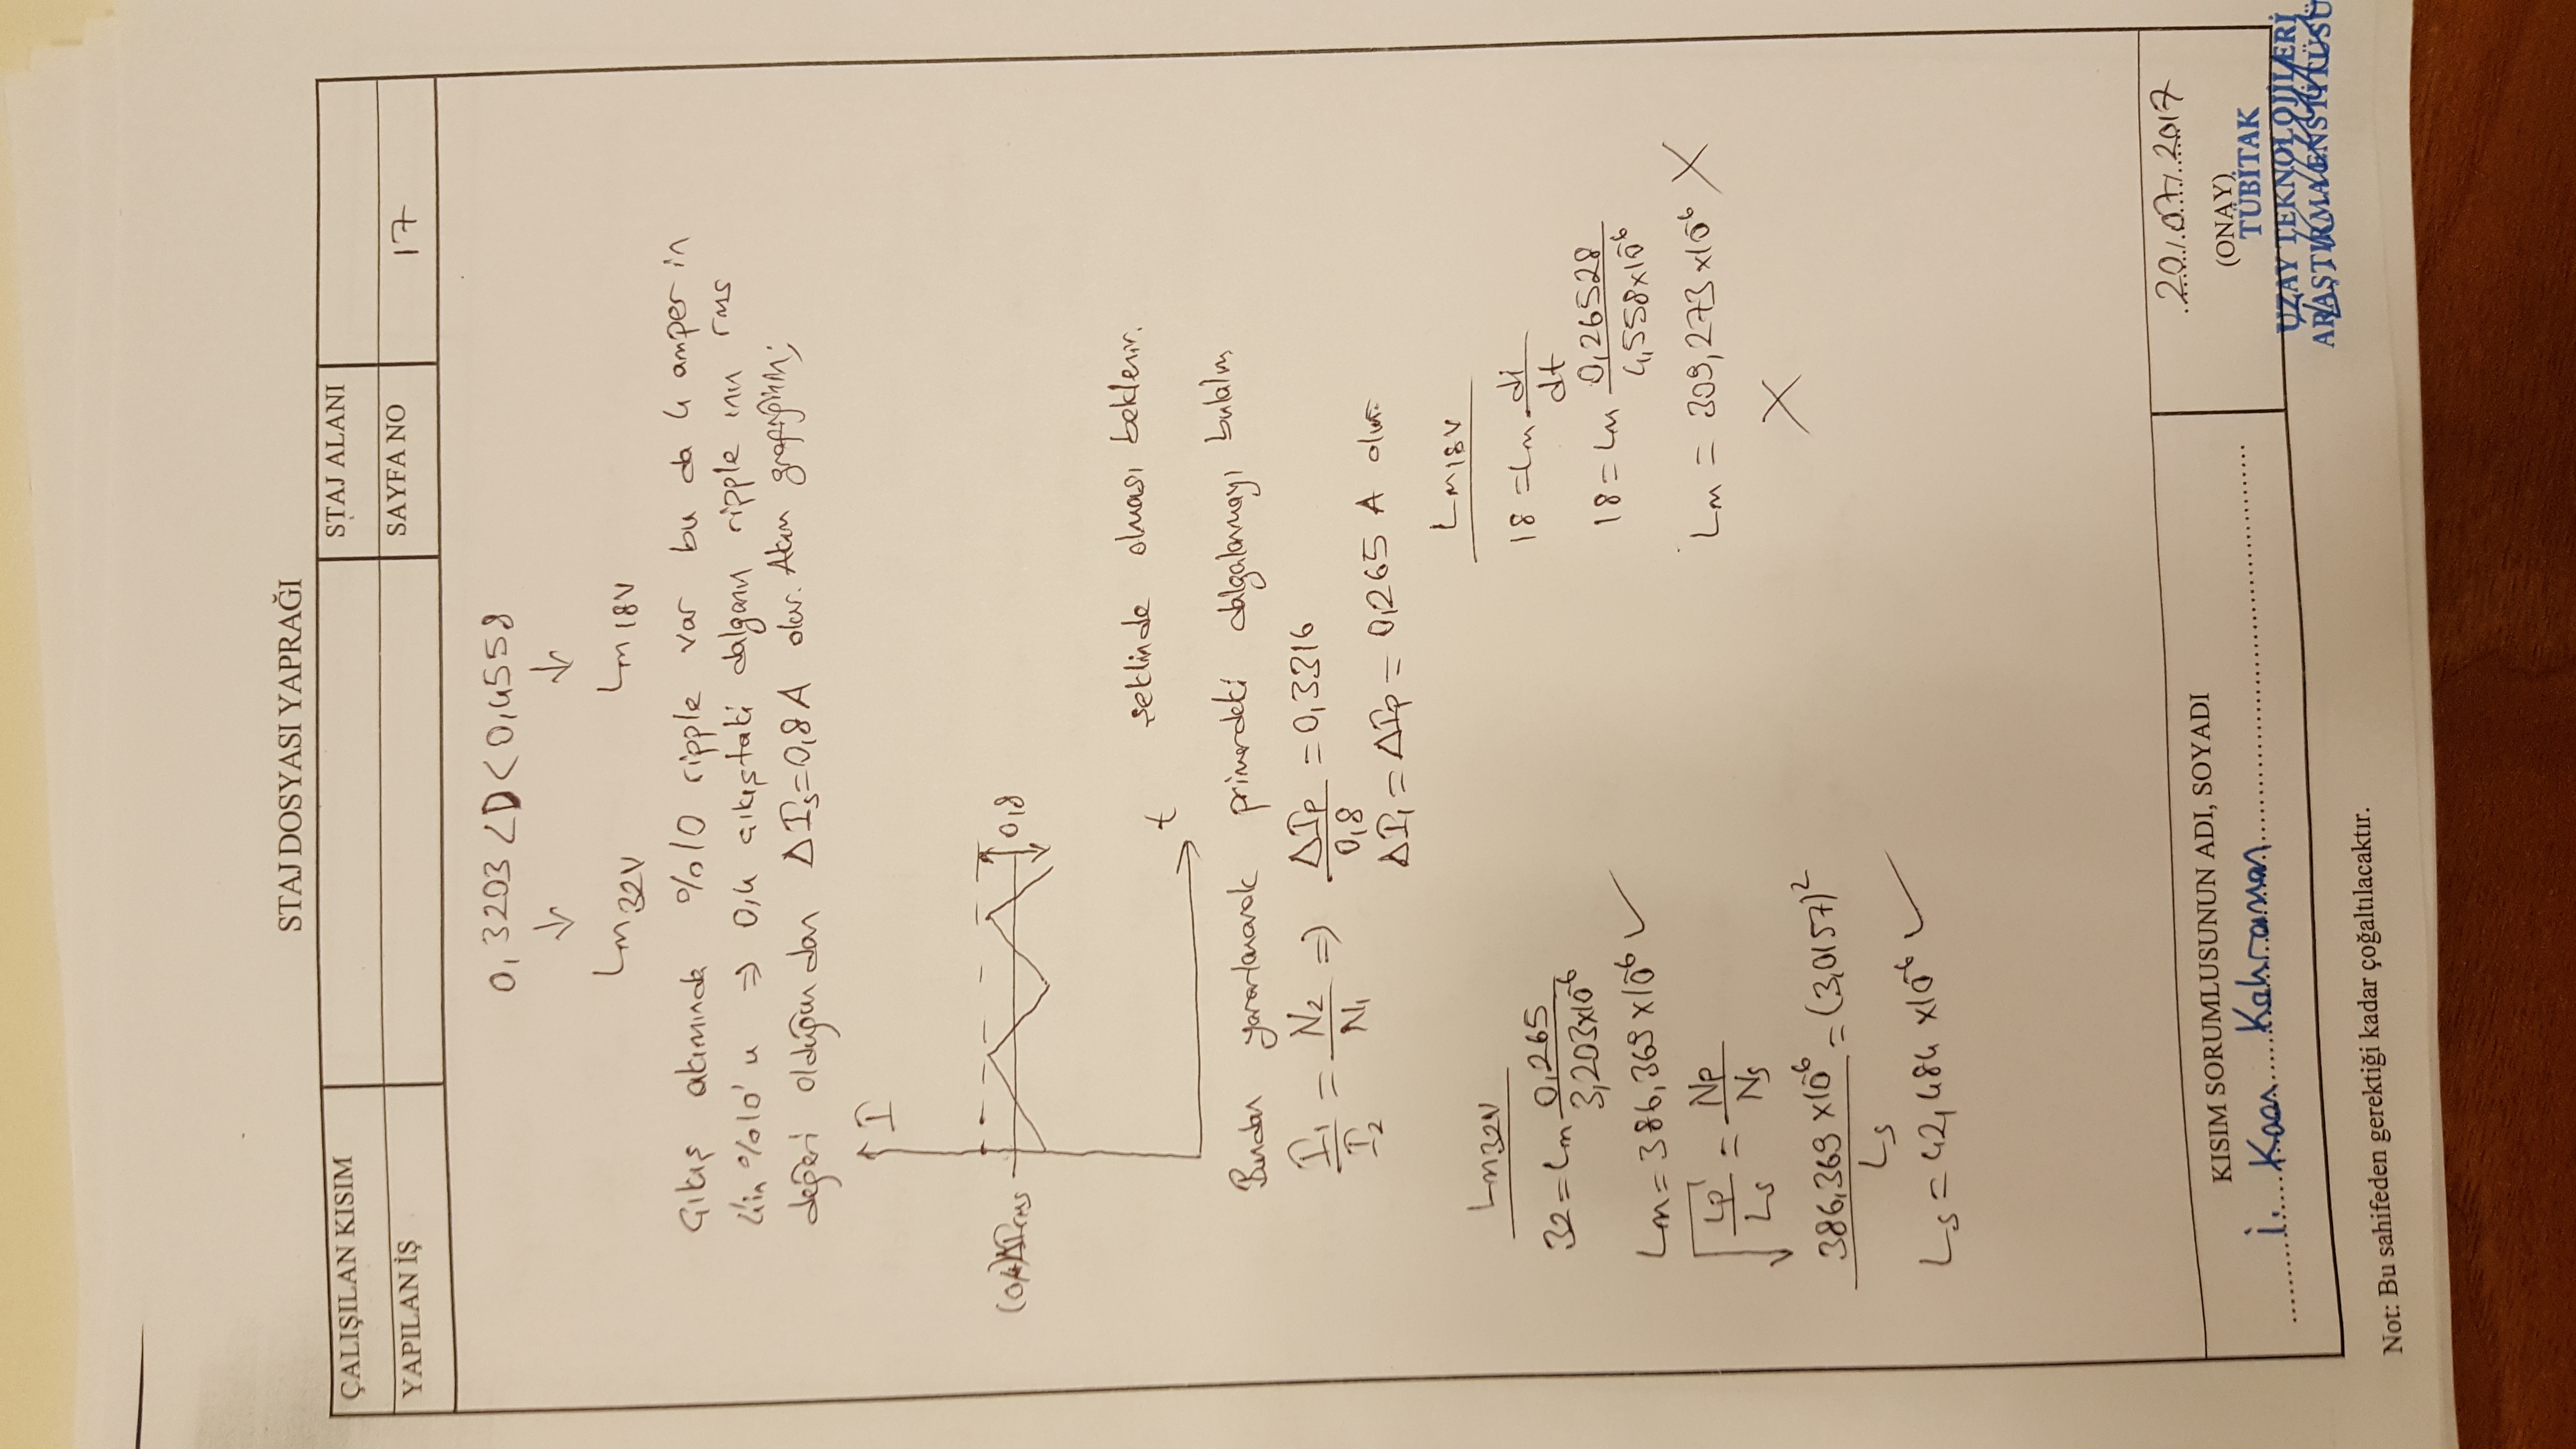 STAJ DOSYASI YAPRAĞI
ÇALIŞILAN KISIM
STAJ ALANI
YAPILAN İŞ
SAYFA NO
17
0,3203 < D < 0,4558
↓ ↓
Lm32V Lm18V
Çıkış akımında %10 ripple var bu da 4 amper in
4'in %10'u ⇒ 0,4 çıkıştaki dalganın ripple ının rms
değeri olduğundan ΔIs=0,8 A olur. Akım grafiğinin;
I
ΔIrms
0,8
t
şeklinde olması beklenir.
Bundan yararlanarak primerdeki dalgalanmayı bulalım
I1/I2 = N2/N1 ⇒ ΔIp/0,8 = 0,3316
ΔI1 = ΔIp = 0,265 A olur.
Lm32V
32 = Lm 0,265/3,203x10^-6
Lm = 386,369 x10^-6 ✓
√(Lp/Ls) = Np/Ns
386,369 x10^-6/Ls = (3,0157)^2
Ls = 42,484 x10^-6 ✓
Lm18V
18 = Lm di/dt
18 = Lm 0,26528/4,558x10^-6
Lm = 309,273 x10^-6 X
X
KISIM SORUMLUSUNUN ADI, SOYADI
İ. Kaan Kahraman
20/07/2017
(ONAY)
TÜBİTAK
UZAY TEKNOLOJİLERİ
ARAŞTIRMA ENSTİTÜSÜ
Not: Bu sahifeden gerektiği kadar çoğaltılacaktır.